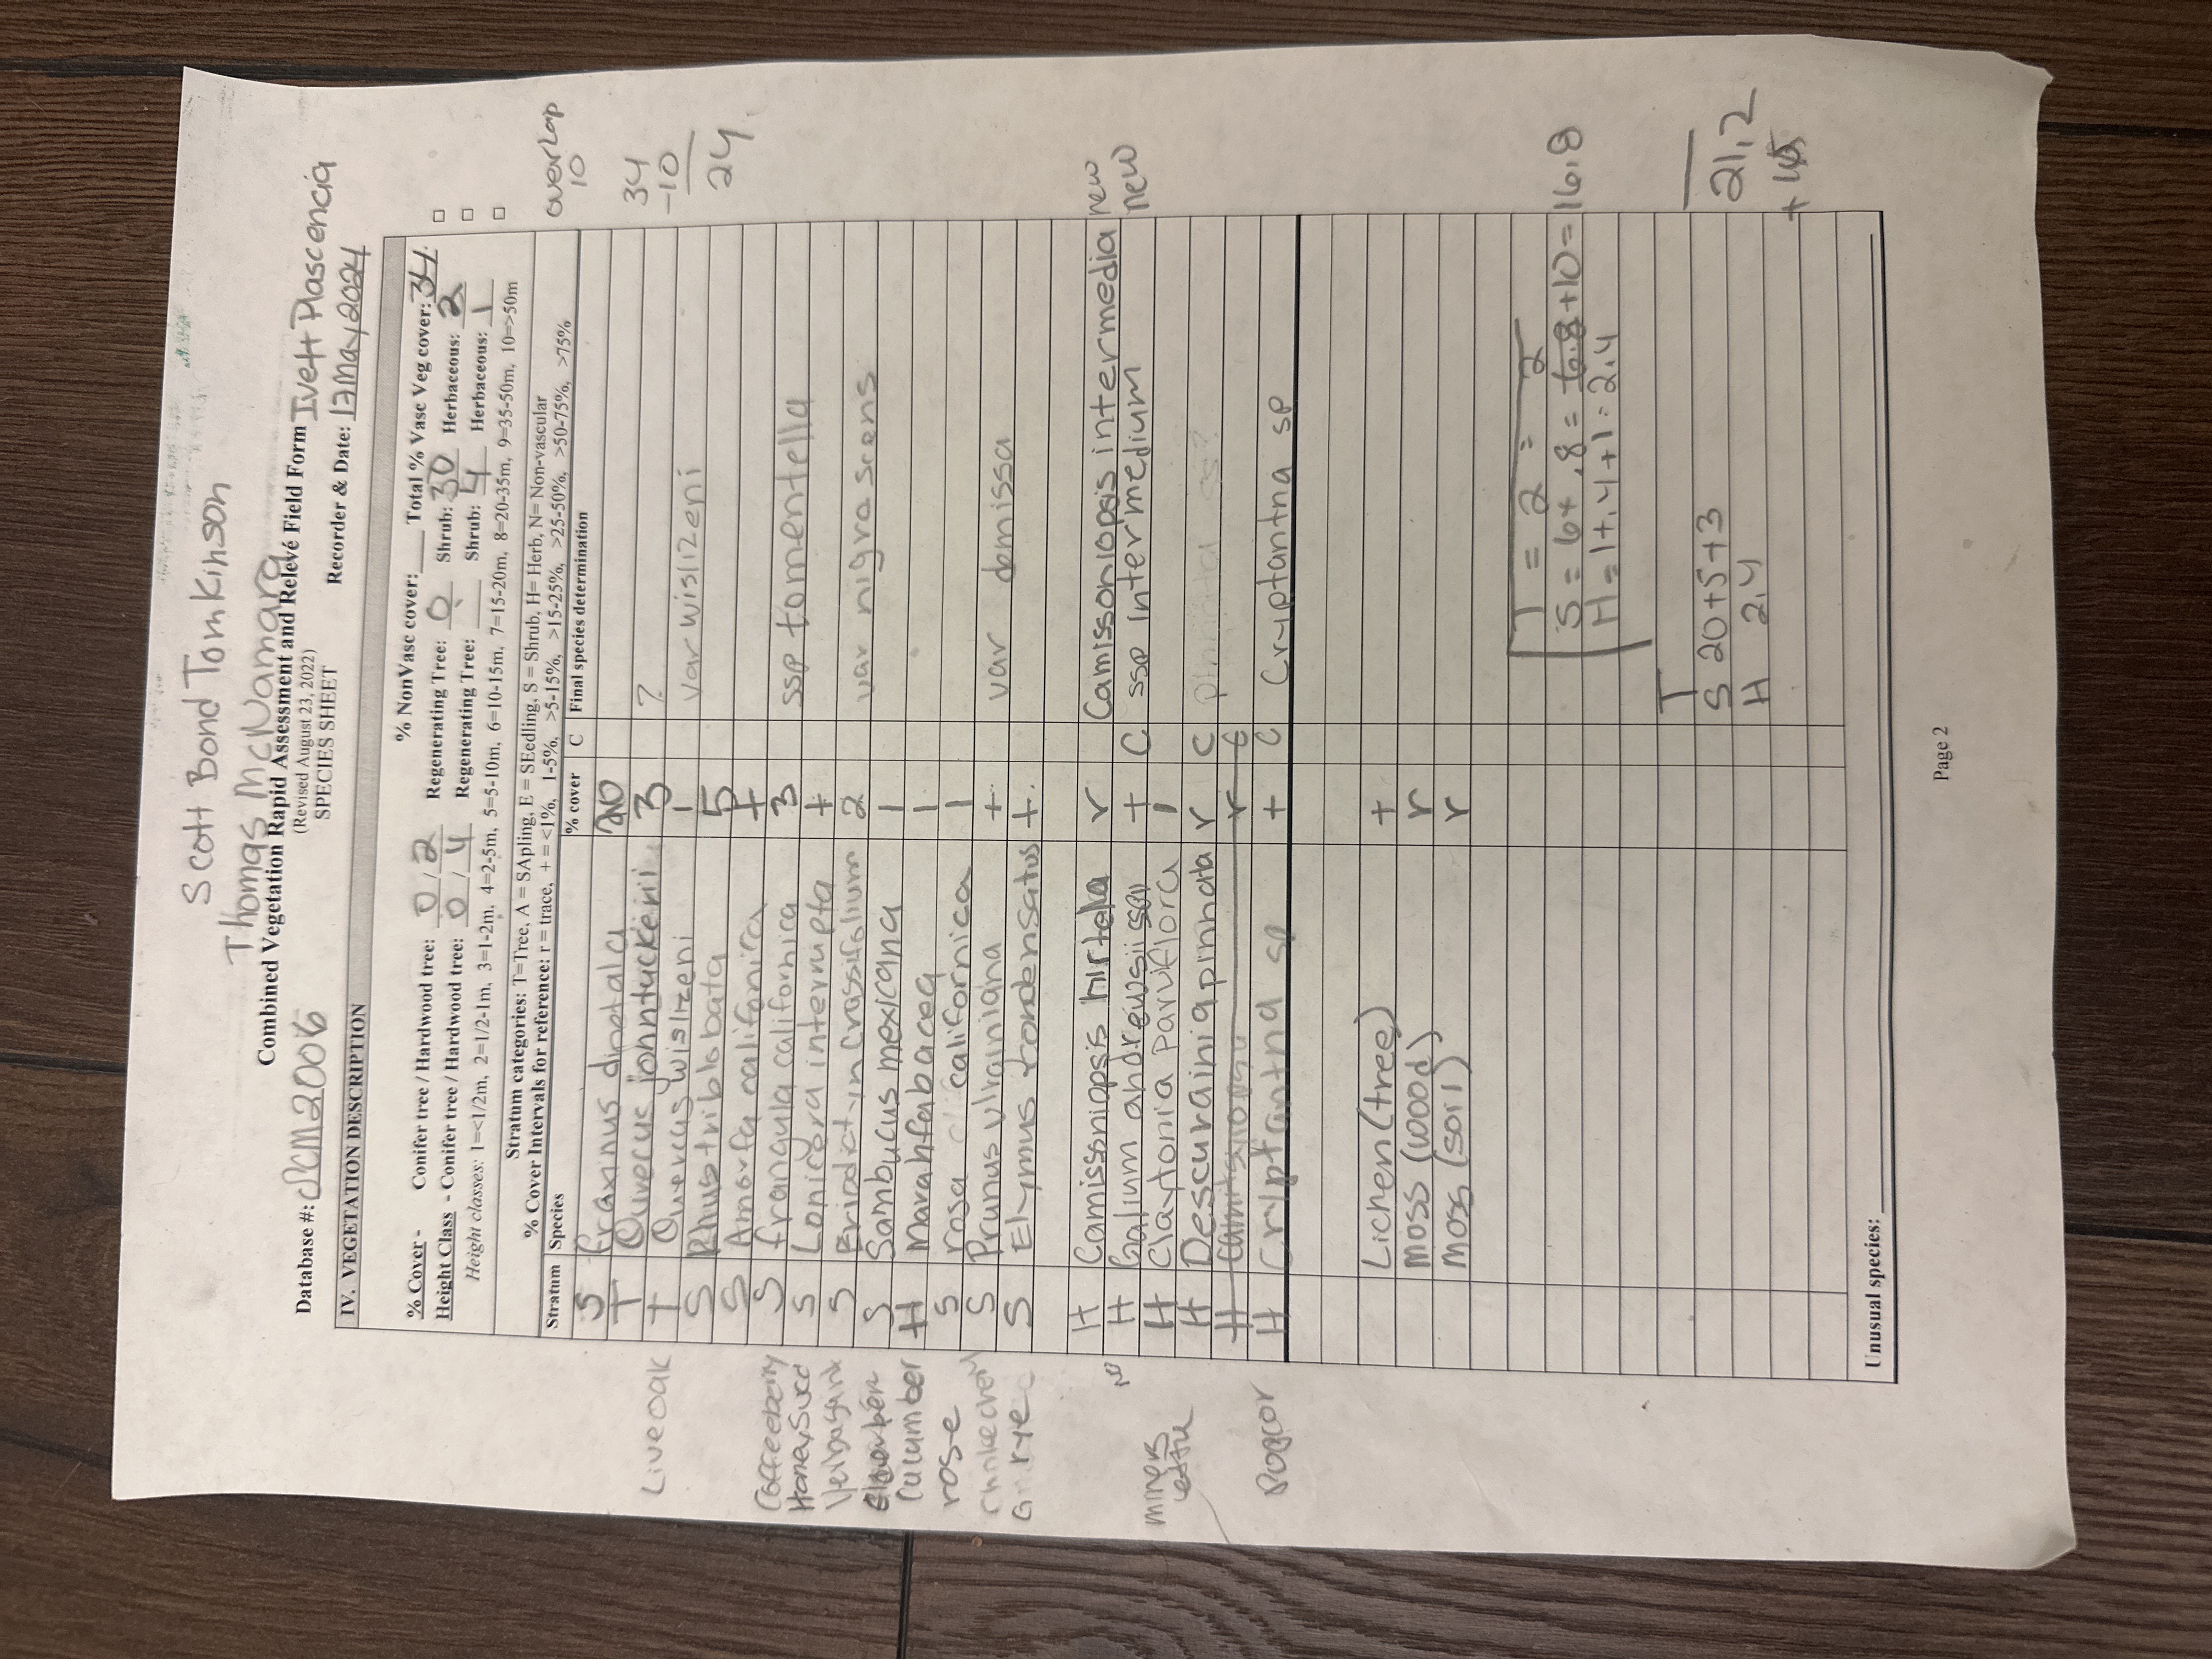 Scott Bond Tomkinson
Thomas McNamara
Combined Vegetation Rapid Assessment and Relevé Field Form Ivett Plascencia
(Revised August 23, 2022)
SPECIES SHEET
Database #: Recorder & Date: 17May2024
IV. VEGETATION DESCRIPTION
% NonVasc cover: ___ Total % Vasc Veg cover: 34
% Cover - Conifer tree / Hardwood tree: 0 / 2 Regenerating Tree: 0 Shrub: 30 Herbaceous: 2
Height Class - Conifer tree / Hardwood tree: 0 / 4 Regenerating Tree: ___ Shrub: 4 Herbaceous: 1
Height classes: 1=<1/2m, 2=1/2-1m, 3=1-2m, 4=2-5m, 5=5-10m, 6=10-15m, 7=15-20m, 8=20-35m, 9=35-50m, 10=>50m
Stratum categories: T=Tree, A = SApling, E = SEedling, S = Shrub, H= Herb, N= Non-vascular
% Cover Intervals for reference: r = trace, + = <1%, 1-5%, >5-15%, >15-25%, >25-50%, >50-75%, >75%
Stratum Species % cover C Final species determination
overlap
10
S fraxinus dipetala 20
T Quercus johntuckerii 3 ?
34
-10
24
Live oak T Quercus wislizeni 1 var wislizeni
S Rhus trilobata 5
S Amorfa californica +
Coffeeberry S frangula californica 3 ssp tomentella
Honeysucc S Lonicera interrupta +
S Eriodictyn Crassifolium 2 var nigrascens
S Sambucus mexicana 1
Cucumber H Marah fabacea 1
rose S rosa californica 1
S Prunus virginiana + var demissa
rye S Elymus condensatus +
H Camissniopsis hirtella r Camissoniopsis intermedia new
H Galium andrewsii ssp + C ssp Intermedium new
miners H Claytonia parviflora 1
H Descurainia pinnata r C pinnata ss?
H r C
Popcor H Cryptantha sp + C Cryptantna sp
Lichen (tree) +
Moss (wood) r
Moss (soil) r
T = 2 = 2
S = 6+ .8 = 6.8 +10 = 16.8
H = 1+.4+1 = 2.4
T
S 20+5+3
H 2.4
21.2
Unusual species:
Page 2